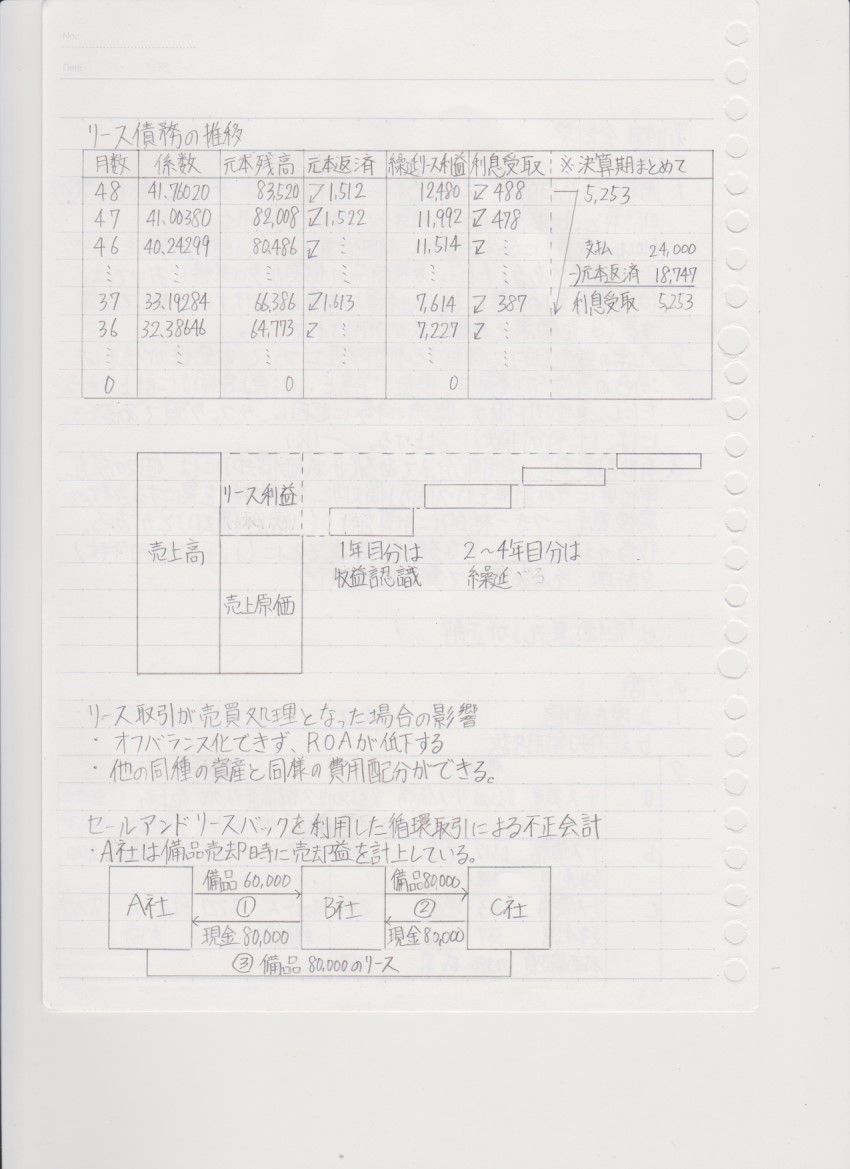 No.
Date
リース債務の推移
月数 係数 元本残高 元本返済 繰延リース利益 利息受取 ※決算期まとめて
48 41.76020 83,520 1,512 12,480 488 5,253
47 41.00380 82,008 1,522 11,992 478
46 40.24299 80,486 ⋮ 11,514 ⋮ 支払 24,000
⋮ ⋮ ⋮ ⋮ ⋮ -)元本返済 18,747
37 33.19284 66,386 1,613 7,614 387 利息受取 5,253
36 32.38646 64,773 ⋮ 7,227 ⋮
⋮ ⋮ ⋮ ⋮ ⋮
0 0 0
リース利益
売上高
1年目分は 2~4年目分は
収益認識 繰延べる
売上原価
リース取引が売買処理となった場合の影響
・オフバランス化できず、ROAが低下する
・他の同種の資産と同様の費用配分ができる。
セールアンドリースバックを利用した循環取引による不正会計
・A社は備品売却時に売却益を計上している。
備品 60,000 備品80,000
A社 ① B社 ② C社
現金 80,000 現金 80,000
③ 備品 80,000のリース